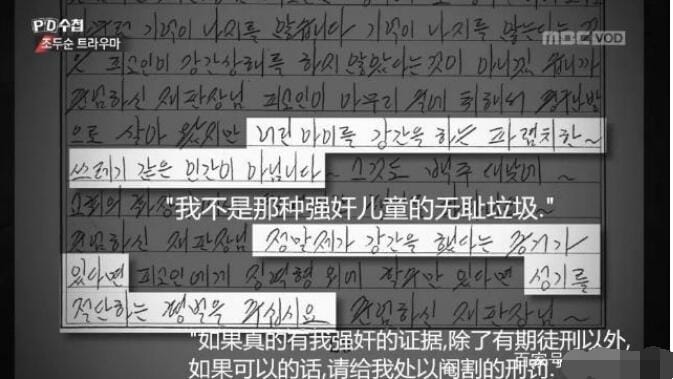 PD수첩
조두순 트라우마
MBC VOD
기억이 나지를 않습니다 기억이 나지를 않는다는 것
은 피고인이 강간상해를 하지 않았다는것이 아니겠습니까
존경하신 재판장님 피고인이 아무리 술에 취해서
으로 살아 왔지만 어린 아이를 강간을 하는 파렴치한~
쓰레기 같은 인간이 아닙니다~ 그것도 백주 대낮에~
"我不是那种强奸儿童的无耻垃圾."
존경하신 재판장님 정말제가 강간을 했다는 증거가
있다면 피고인에게 징역형 외에 할수만 있다면 성기를
절단하는 형벌을 주십시요 존경하신 재판장님~
"如果真的有我强奸的证据,除了有期徒刑以外,
如果可以的话,请给我处以阉割的刑罚."
百家号